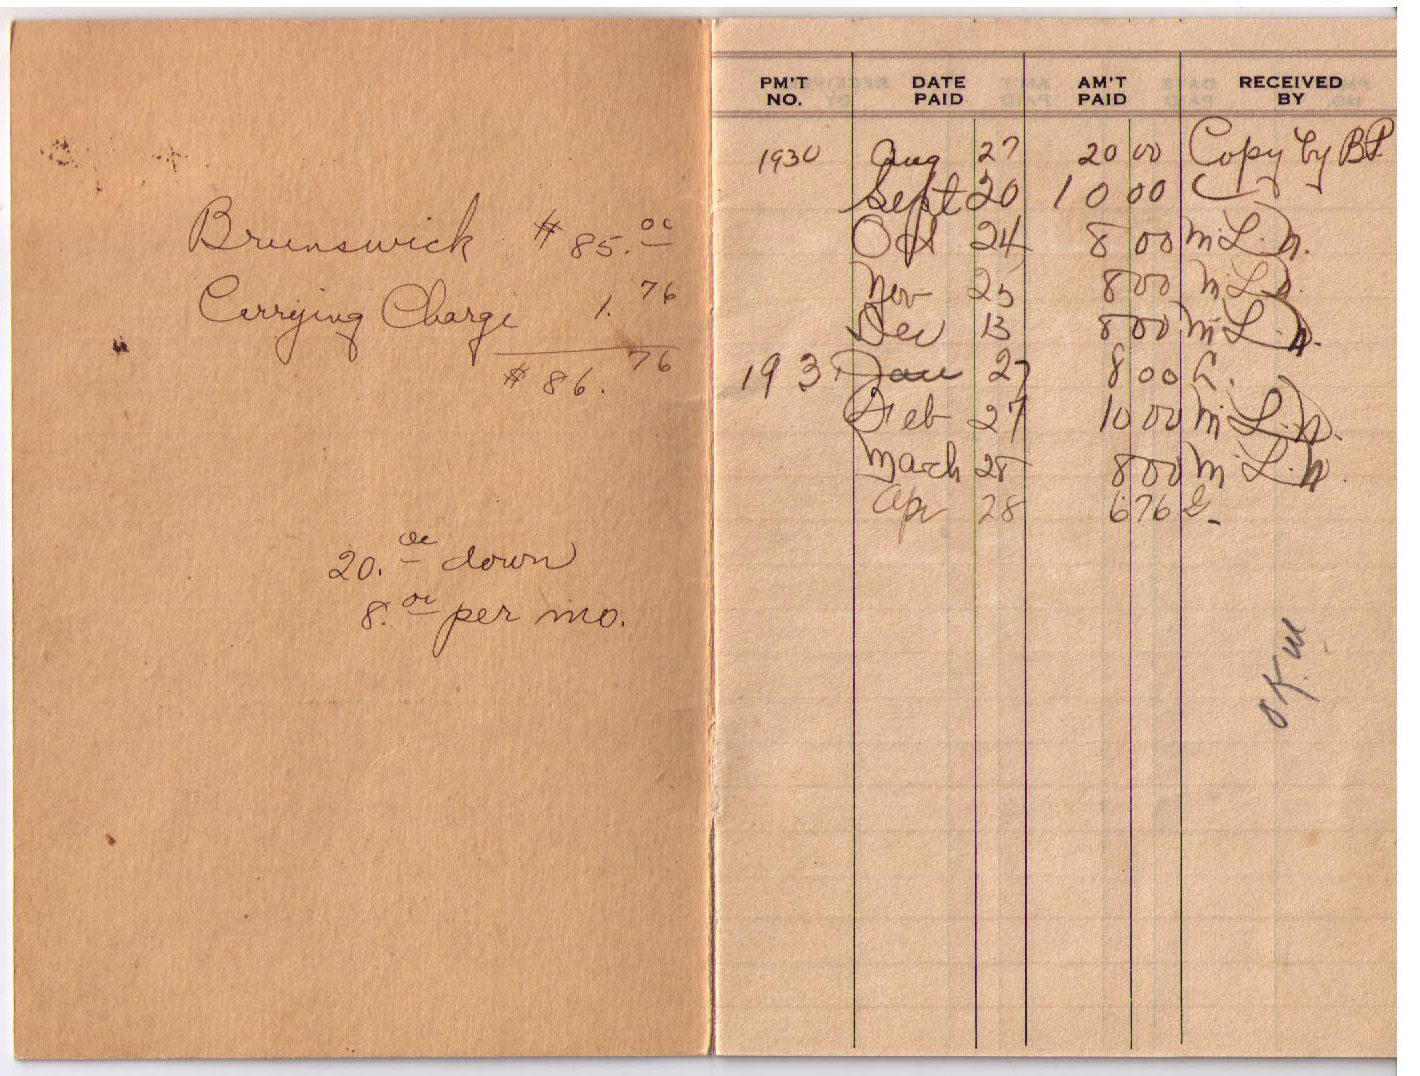 Brunswick $85.oo
Carrying Charge 1.76
$86.76
20.oo down
8.oo per mo.
PM'T NO. DATE PAID AM'T PAID RECEIVED BY
1930 Aug 27 20 00 Copy by BP
Sept 20 10 00
Oct 24 8 00 M.L.N.
Nov 25 8 00 M L N.
Dec 13 8 00 M L.N.
193 Jan 27 8 00
Feb 27 10 00 M L.N.
March 28 8 00 M L.N.
Apr 28 6 76
OK